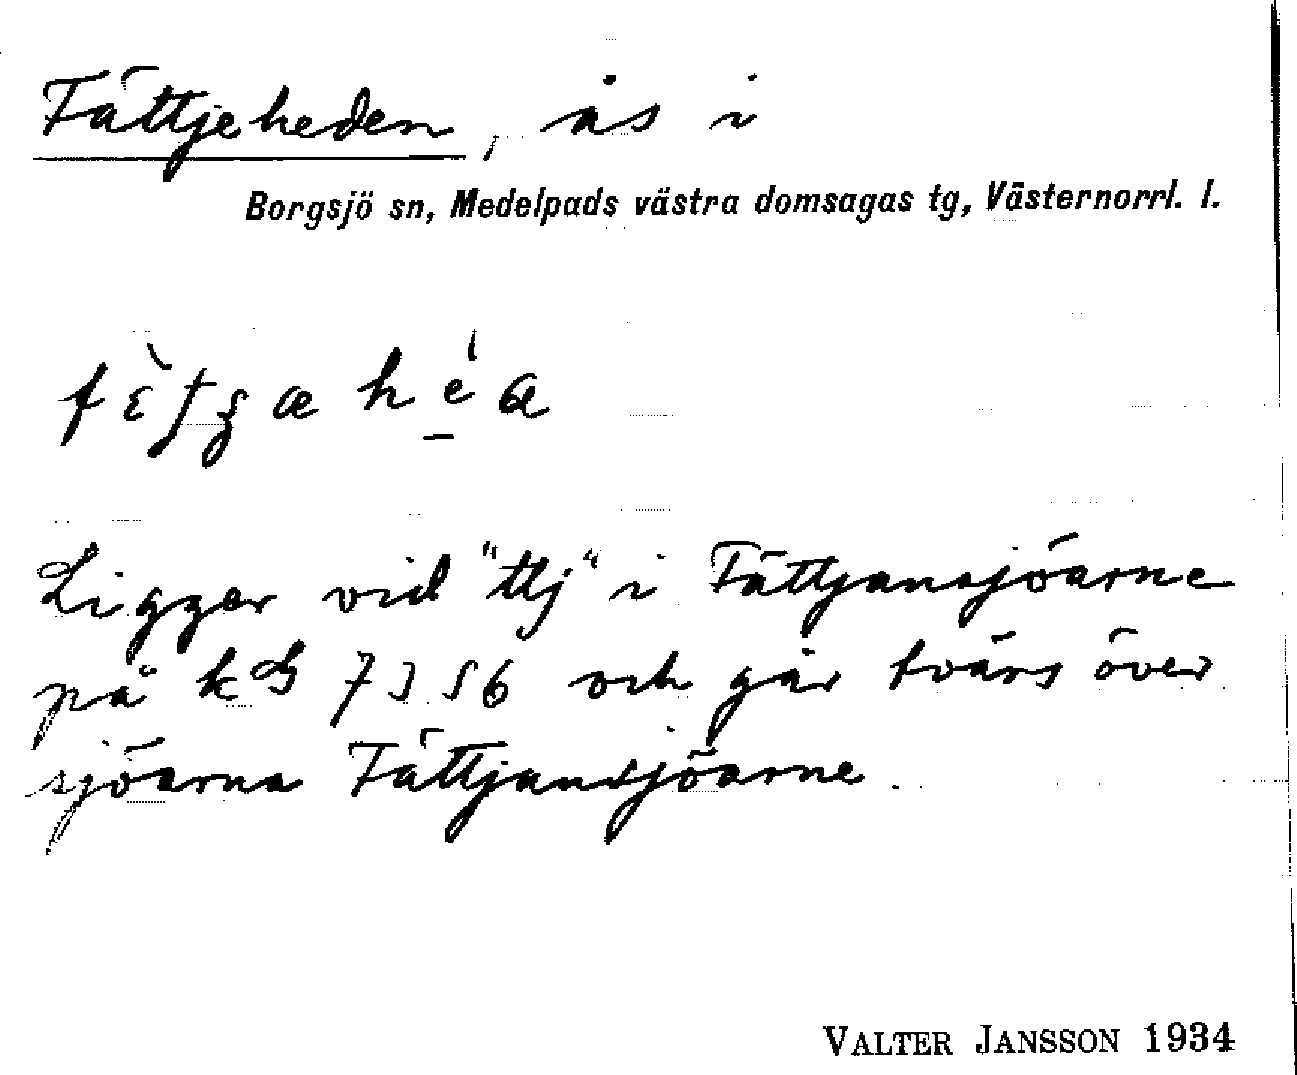 Fättjeheden, ås i
Borgsjö sn, Medelpads västra domsagas tg, Västernorrl. l.
Ligger vid "ttj" i Fättjansjöarne
på kG 7356 och går tvärs över
sjöarna Fättjansjöarne.
VALTER JANSSON 1934